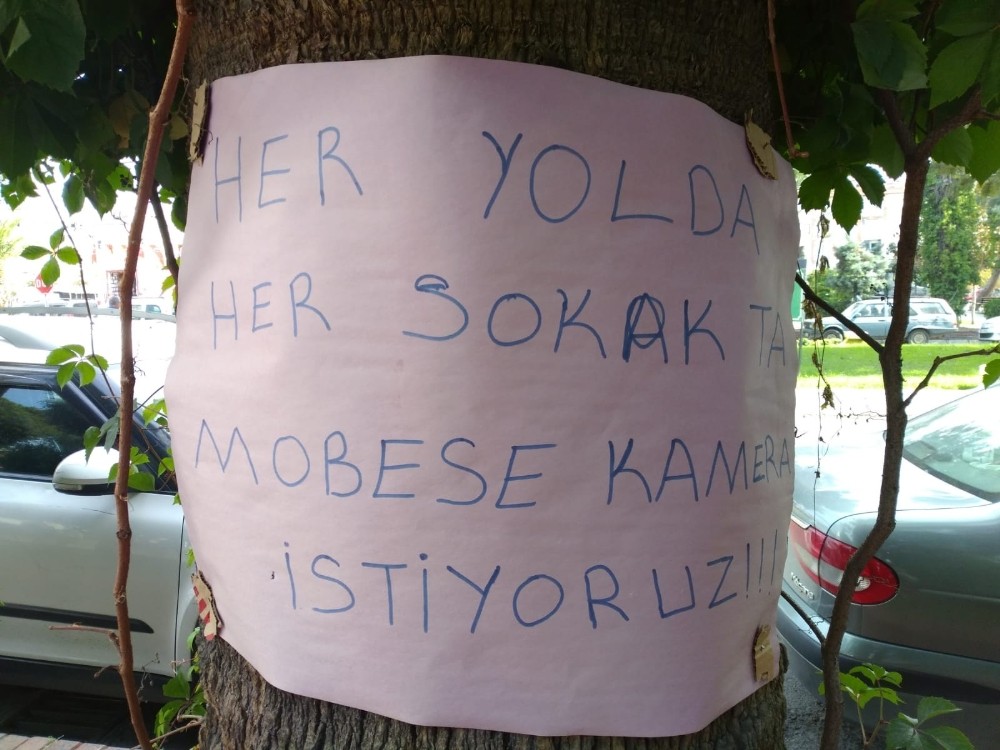 HER YOLDA
HER SOKAK TA
MOBESE KAMERA
İSTİYORUZ!!!